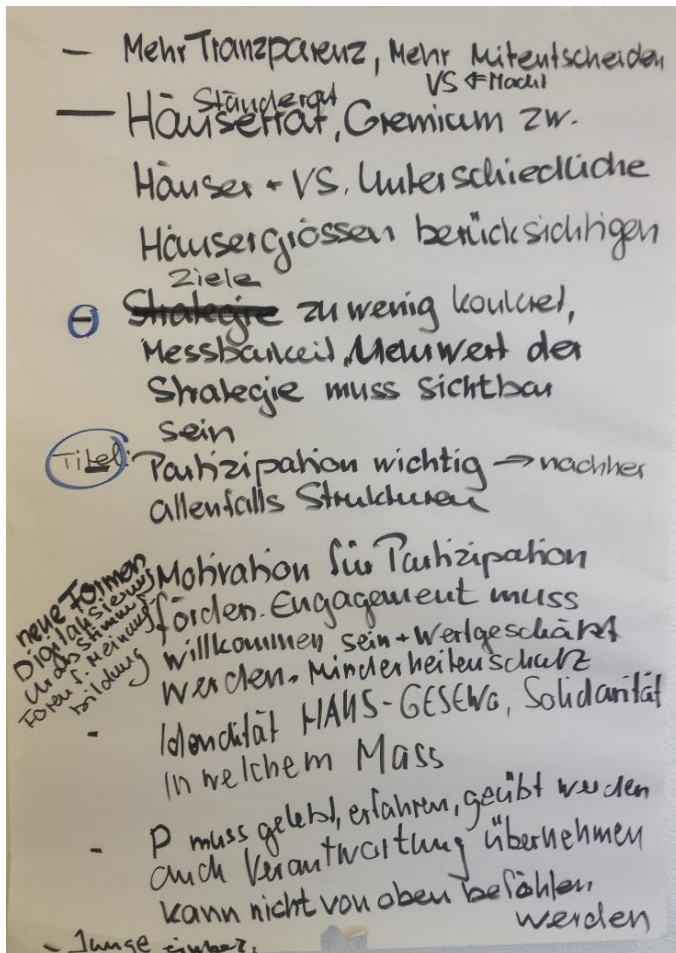 – Mehr Tranzparenz, Mehr Mitentscheiden
VS ⇐ Macht
Ständerat
– Häuserrat, Gremium zw.
Häuser + VS. Unterschiedliche
Häusergrössen berücksichtigen
Ziele
– Strategie zu wenig konkret,
Messbarkeit, Mehrwert der
Strategie muss sichtbar
sein
Titel: Partizipation wichtig → nachher
allenfalls Strukturen
neue Formen
Digitalisierung
Urabstimmung
Foren f. Meinungs
bildung
Motivation für Partizipation
förden. Engagement muss
willkommen sein + Wertgeschätzt
werden. Minderheitenschutz
- Idendität HAUS-GESEWO, Solidarität
In welchem Mass
- P muss gelebt, erfahren, geübt werden
auch Verantwortung übernehmen
kann nicht von oben befohlen
werden
- Junge